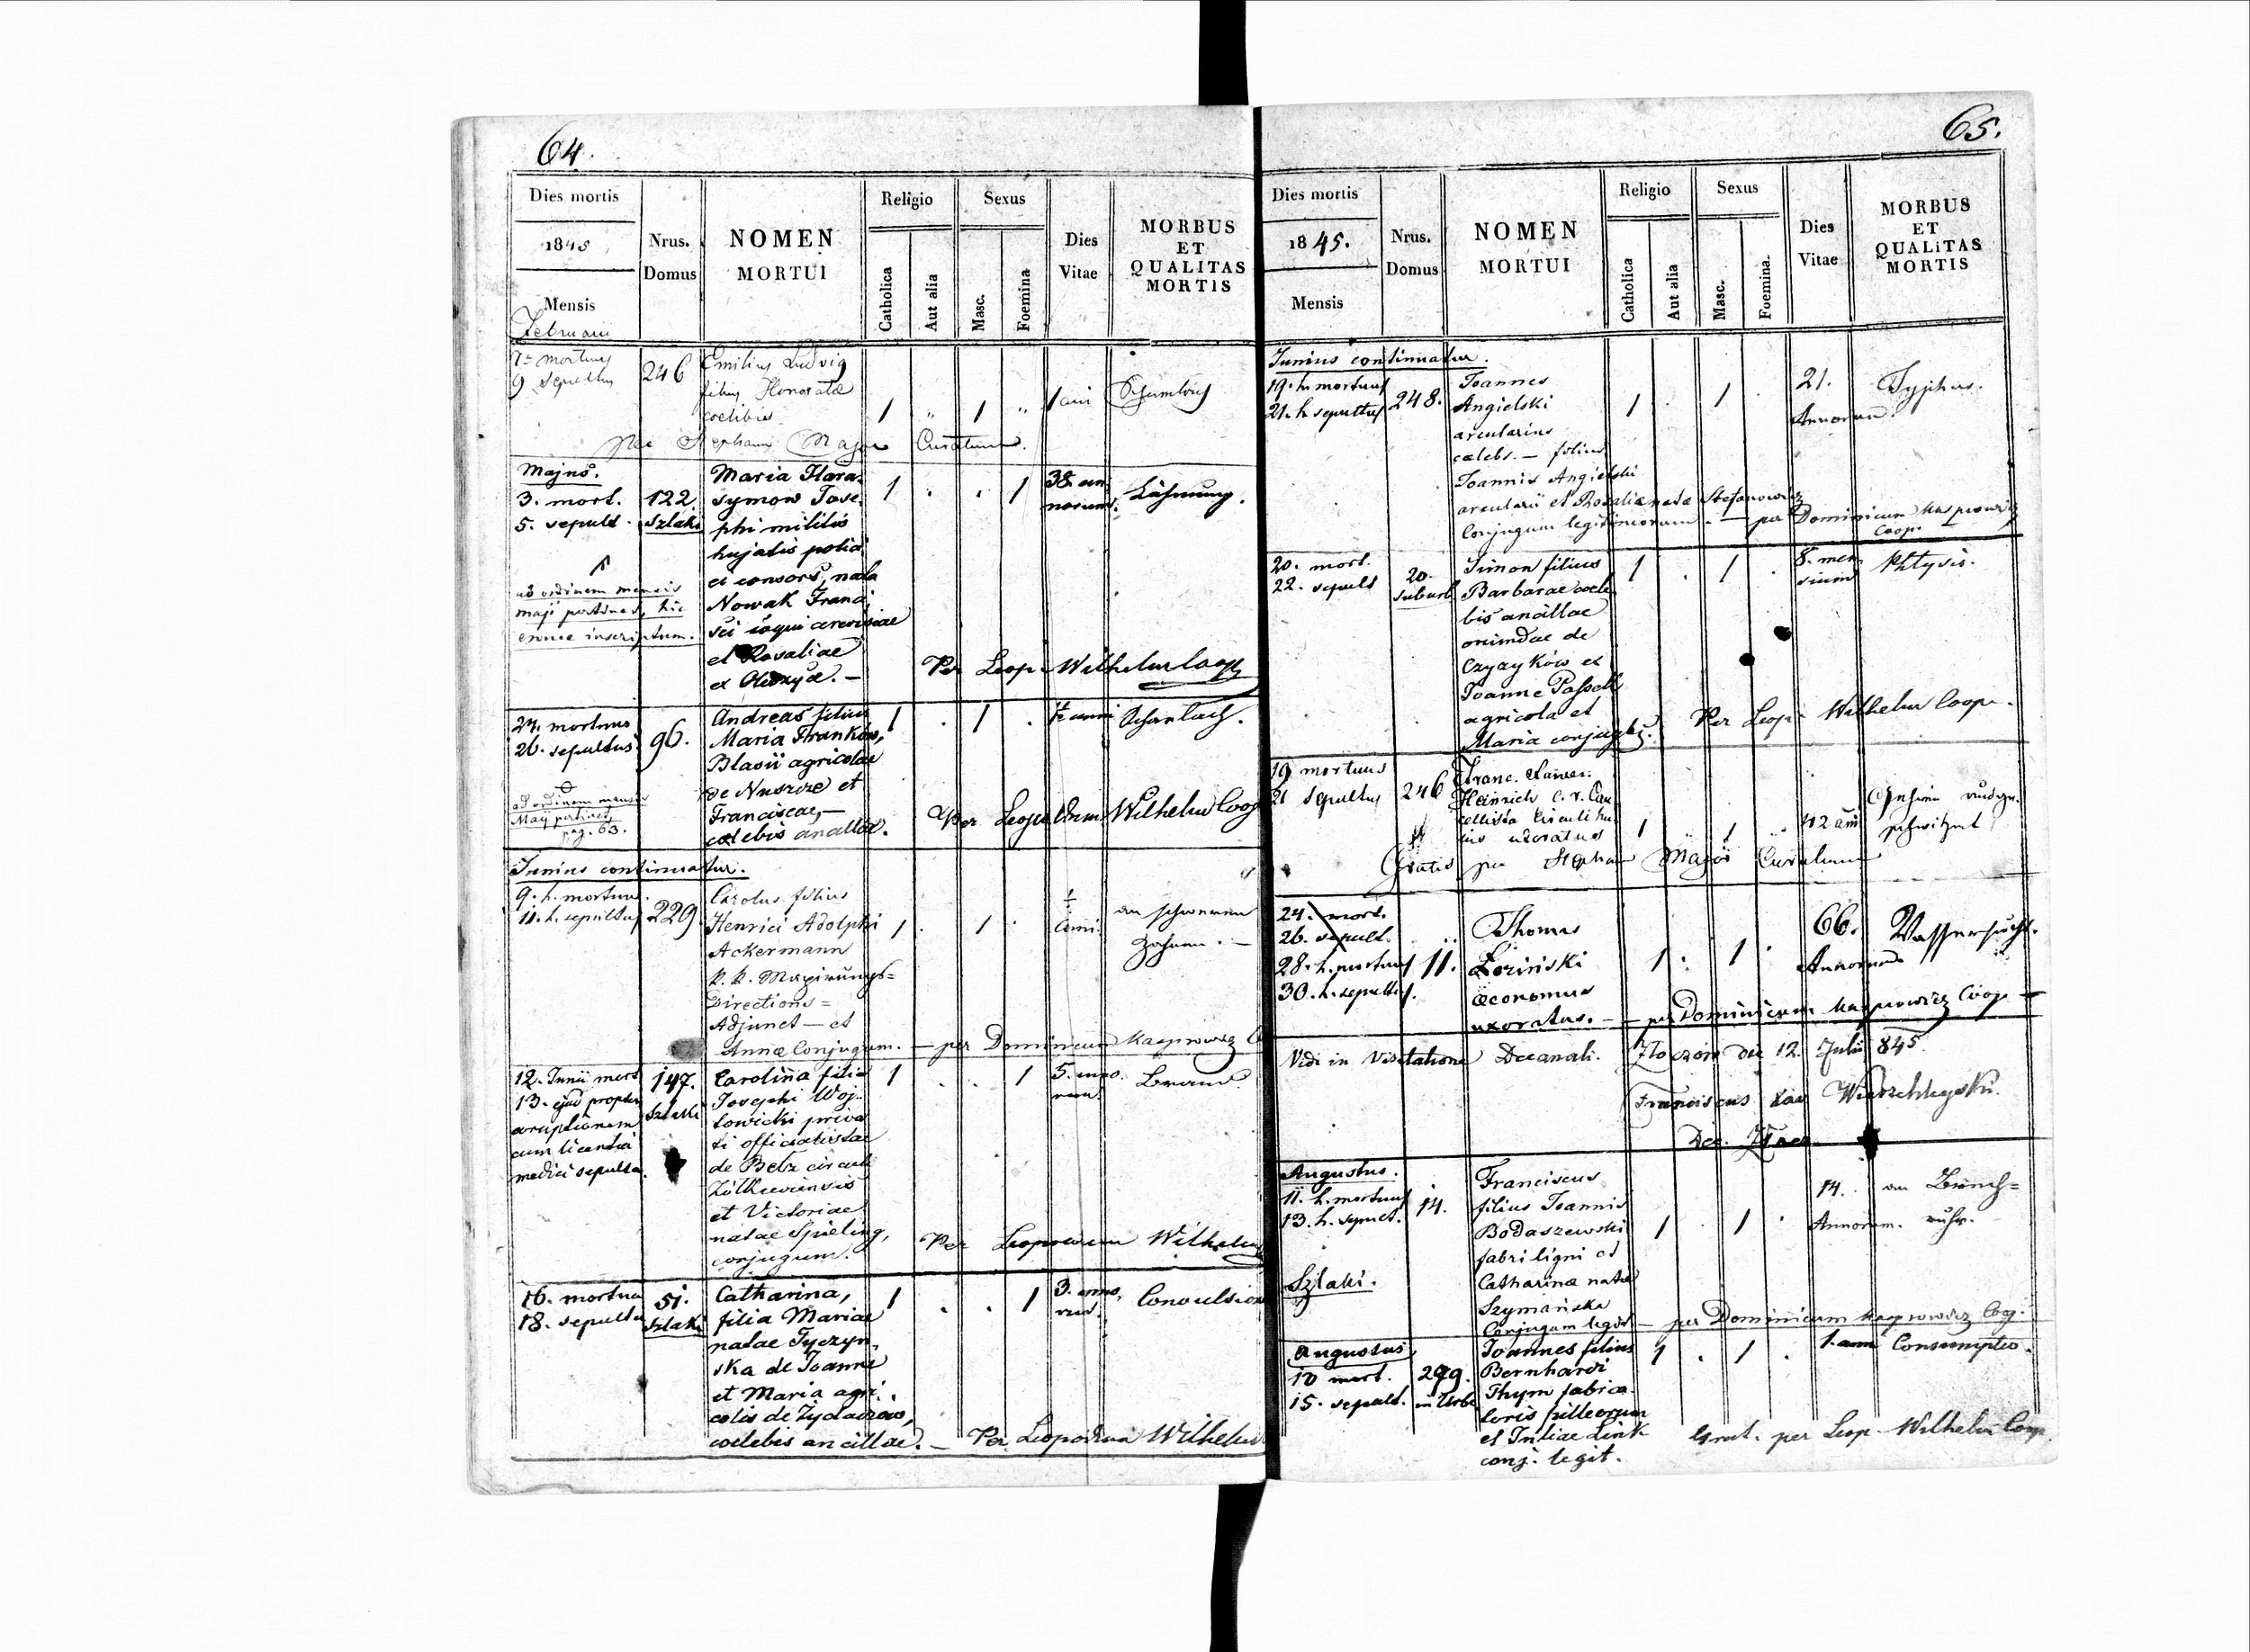 64.
Dies mortis
1845
Mensis
Februarii
Nrus.
Domus
NOMEN
MORTUI
Religio
Catholica
Aut alia
Sexus
Masc.
Foemina
Dies
Vitae
MORBUS
ET
QUALITAS
MORTIS
7 mortuus
9 sepultus
246
Emilius Ludvig
filius Honorata
coelibis
1 " 1 "
1 anni
per Stephanum Major Curatum.
Majus.
3. mort.
5. sepult.
122.
Szlaki
Maria Hara-
symow Jose-
phi militis
hujatis polici
ei consors, nata
Nowak Franci
sci coqui cerevisiae
et Rosaliae
ex
1 . . 1
38. an
norum.
Lähmung.
ad ordinem mensis
maji pertinens, hic
inscriptum.
Per Leop. Wilhelm Coop
24. mortuus
26. sepultus
96.
Andreas filius
Maria Franków,
Blasii agricolae
de Nuszcze et
Franciscae,
coelebis ancillae.
1 . 1 .
½ anni
Scharlach.
ad ordinem mensis
Maji pertinens
pag. 63.
Per Leopoldum Wilhelm Coop
Junius continuatur.
9. h. mortuus.
11. h. sepultus
229.
Carolus filius
Henrici Adolphi
Ackermann
k. k.
Directions=
Adjunct — et
Annae Conjugum. — per Dominicum Kasprowicz
1 . 1 .
anni.
an schweren
Zahnen. —
12. Junii mort
13. ejusd propter
eruptionem
cum licentia
medici sepulta.
147.
Szlaki
Carolina filia
Josephi Woj-
towicki priva
ti officialistae
de Bełz circuli
Zółkieviensis
et Victoriae
natae Spieling,
conjugum.
1 . . 1
5. anno
rum.
Brand.
Per Leopoldum Wilhelm
16. mortua
18. sepulta
51.
Szlaki
Catharina,
filia Mariae
natae Tyczyn-
ska de Joanne
et Maria agri-
colis de Zydaczow,
coelebis ancillae. — Per Leopoldum Wilhelm
1 . . 1
3. anno,
rum.
Convulsion
65.
Dies mortis
1845.
Mensis
Nrus.
Domus
NOMEN
MORTUI
Religio
Catholica
Aut alia
Sexus
Masc.
Foemina.
Dies
Vitae
MORBUS
ET
QUALITAS
MORTIS
Junius continuatur.
19. h. mortuus
21. h. sepultus
248.
Joannes
Angielski
arcularius
caelebs. — filius
Joannis Angielski
arcularii et Rosaliae natae Stefanowicz
Conjugum legitimorum. — per Dominicum Kasprowicz
Coop.
1 . 1 .
21.
Annorum.
Typhus.
20. mort.
22. sepult
20.
suburb
Simon filius
Barbarae coele
bis ancillae
oriundae de
Czyżyków ex
Joanne
agricola et
Maria conjugibus.
1 . 1 .
8. men
sium
Phtysis.
Per Leop. Wilhelm Coop.
19 mortuus
21 sepultus
246
Franc. Xaver.
Heinrich C. R. Can
cellista Circuli hu
jus uxoratus
1 " 1 "
42 anni
Gratis per Stephan Major Curatum
24. mort.
26. sepult.
28. h. mortuus
30. h. sepultus.
11.
Thomas
Loziński
oeconomus
uxoratus. — per Dominicum Kasprowicz Coop —
1 . 1 .
66.
Annorum
Wassersucht.
Vidi in Visitatione Decanali. Złoczów die 12. Julii 845.
Franciscus Xav
Dec.
Augustus.
11. h. mortuus
13. h. sepult.
Szlaki.
14.
Franciscus
filius Joannis
Bodaszewski
fabri ligni et
Catharinae natae
Szymańska
Conjugum legit — per Dominicum Kasprowicz Coop.
1 . 1 .
14.
Annorum.
an Bauch=
ruhr.
Augustus
10 mort.
15. sepult.
299.
in Urbe
Joannes filius
Bernhardi
Thym fabrica
toris pilleorum
et Juliae Link
conj. legit.
1 . 1 .
1. anni
Consumptio.
Grat. per Leop. Wilhelm Coop